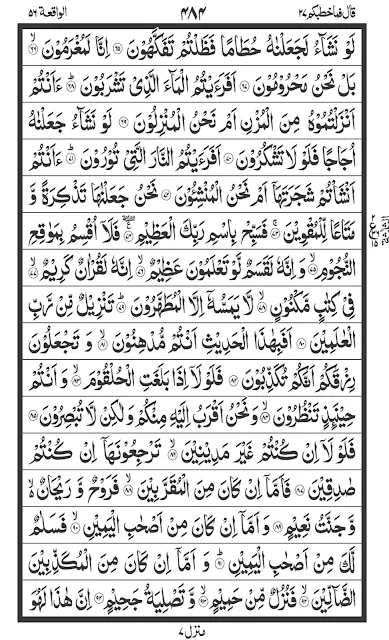 قال فما خطبكم ٢٧ ٤٨٤ الواقعة ٥٦
لَوْ نَشَآءُ لَجَعَلْنٰهُ حُطَامًا فَظَلْتُمْ تَفَكَّهُوْنَ ﴿٦٥﴾ اِنَّا لَمُغْرَمُوْنَ ﴿٦٦﴾
بَلْ نَحْنُ مَحْرُوْمُوْنَ ﴿٦٧﴾ اَفَرَءَيْتُمُ الْمَآءَ الَّذِيْ تَشْرَبُوْنَ ﴿٦٨﴾ ءَاَنْتُمْ
اَنْزَلْتُمُوْهُ مِنَ الْمُزْنِ اَمْ نَحْنُ الْمُنْزِلُوْنَ ﴿٦٩﴾ لَوْ نَشَآءُ جَعَلْنٰهُ
اُجَاجًا فَلَوْ لَا تَشْكُرُوْنَ ﴿٧٠﴾ اَفَرَءَيْتُمُ النَّارَ الَّتِيْ تُوْرُوْنَ ﴿٧١﴾ ءَاَنْتُمْ
اَنْشَاْتُمْ شَجَرَتَهَآ اَمْ نَحْنُ الْمُنْشِـُٔوْنَ ﴿٧٢﴾ نَحْنُ جَعَلْنٰهَا تَذْكِرَةً وَّ
مَتَاعًا لِّلْمُقْوِيْنَ ﴿٧٣﴾ فَسَبِّحْ بِاسْمِ رَبِّكَ الْعَظِيْمِ ﴿٧٤﴾ فَلَآ اُقْسِمُ بِمَوٰقِعِ
النُّجُوْمِ ﴿٧٥﴾ وَ اِنَّهٗ لَقَسَمٌ لَّوْ تَعْلَمُوْنَ عَظِيْمٌ ﴿٧٦﴾ اِنَّهٗ لَقُرْاٰنٌ كَرِيْمٌ ﴿٧٧﴾
فِيْ كِتٰبٍ مَّكْنُوْنٍ ﴿٧٨﴾ لَّا يَمَسُّهٗٓ اِلَّا الْمُطَهَّرُوْنَ ﴿٧٩﴾ تَنْزِيْلٌ مِّنْ رَّبِّ
الْعٰلَمِيْنَ ﴿٨٠﴾ اَفَبِهٰذَا الْحَدِيْثِ اَنْتُمْ مُّدْهِنُوْنَ ﴿٨١﴾ وَ تَجْعَلُوْنَ
رِزْقَكُمْ اَنَّكُمْ تُكَذِّبُوْنَ ﴿٨٢﴾ فَلَوْ لَآ اِذَا بَلَغَتِ الْحُلْقُوْمَ ﴿٨٣﴾ وَ اَنْتُمْ
حِيْنَىِٕذٍ تَنْظُرُوْنَ ﴿٨٤﴾ وَ نَحْنُ اَقْرَبُ اِلَيْهِ مِنْكُمْ وَ لٰكِنْ لَّا تُبْصِرُوْنَ ﴿٨٥﴾
فَلَوْ لَآ اِنْ كُنْتُمْ غَيْرَ مَدِيْنِيْنَ ﴿٨٦﴾ تَرْجِعُوْنَهَآ اِنْ كُنْتُمْ
صٰدِقِيْنَ ﴿٨٧﴾ فَاَمَّآ اِنْ كَانَ مِنَ الْمُقَرَّبِيْنَ ﴿٨٨﴾ فَرَوْحٌ وَّ رَيْحَانٌ ۙ
وَّ جَنَّتُ نَعِيْمٍ ﴿٨٩﴾ وَ اَمَّآ اِنْ كَانَ مِنْ اَصْحٰبِ الْيَمِيْنِ ﴿٩٠﴾ فَسَلٰمٌ
لَّكَ مِنْ اَصْحٰبِ الْيَمِيْنِ ﴿٩١﴾ وَ اَمَّآ اِنْ كَانَ مِنَ الْمُكَذِّبِيْنَ
الضَّآلِّيْنَ ﴿٩٢﴾ فَنُزُلٌ مِّنْ حَمِيْمٍ ﴿٩٣﴾ وَّ تَصْلِيَةُ جَحِيْمٍ ﴿٩٤﴾ اِنَّ هٰذَا لَهُوَ
منزل ٧